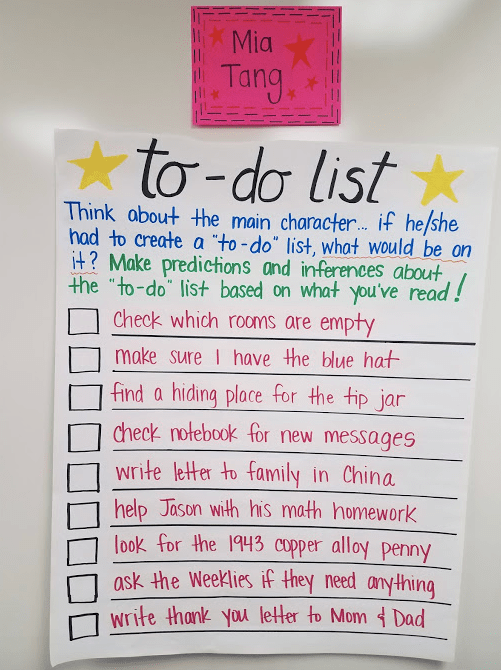 Mia
Tang
to-do list
Think about the main character... if he/she
had to create a "to-do" list, what would be on
it? Make predictions and inferences about
the "to-do" list based on what you've read!
check which rooms are empty
make sure I have the blue hat
find a hiding place for the tip jar
check notebook for new messages
write letter to family in China
help Jason with his math homework
look for the 1943 copper alloy penny
ask the Weeklies if they need anything
write thank you letter to Mom & Dad